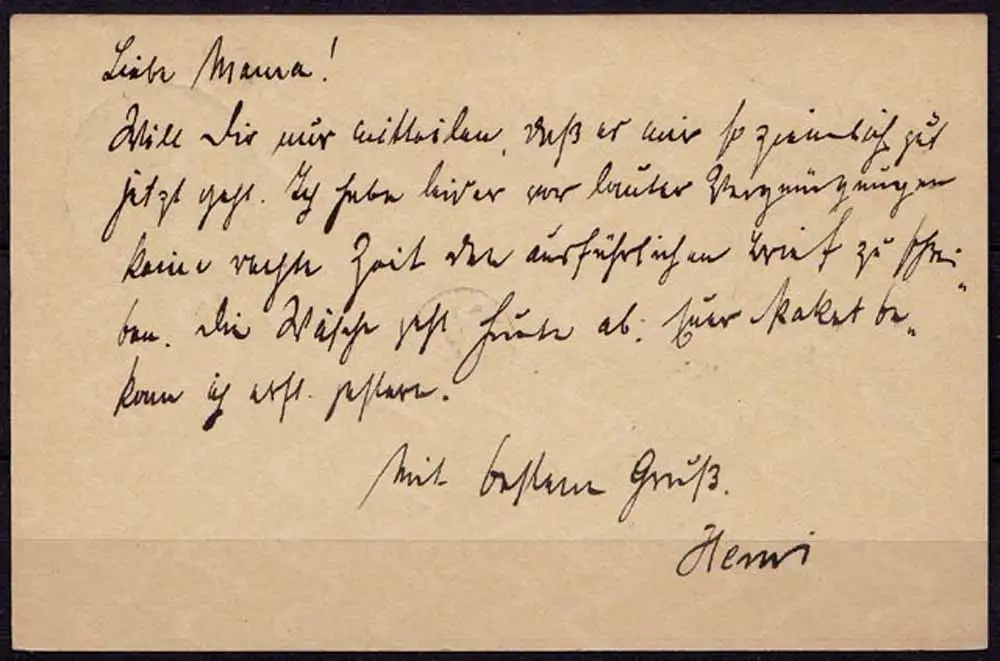 Liebe Mama!
Will Dir nur mitteilen, daß es mir so ziemlich gut
jetzt geht. Ich habe leider vor lauter Vergnügungen
keine rechte Zeit den ausführlichen Brief zu schrei-
ben. Die Wäsche geht heute ab. Euer Paket be-
kam ich erst gestern.
Mit bestem Gruß.
Henri